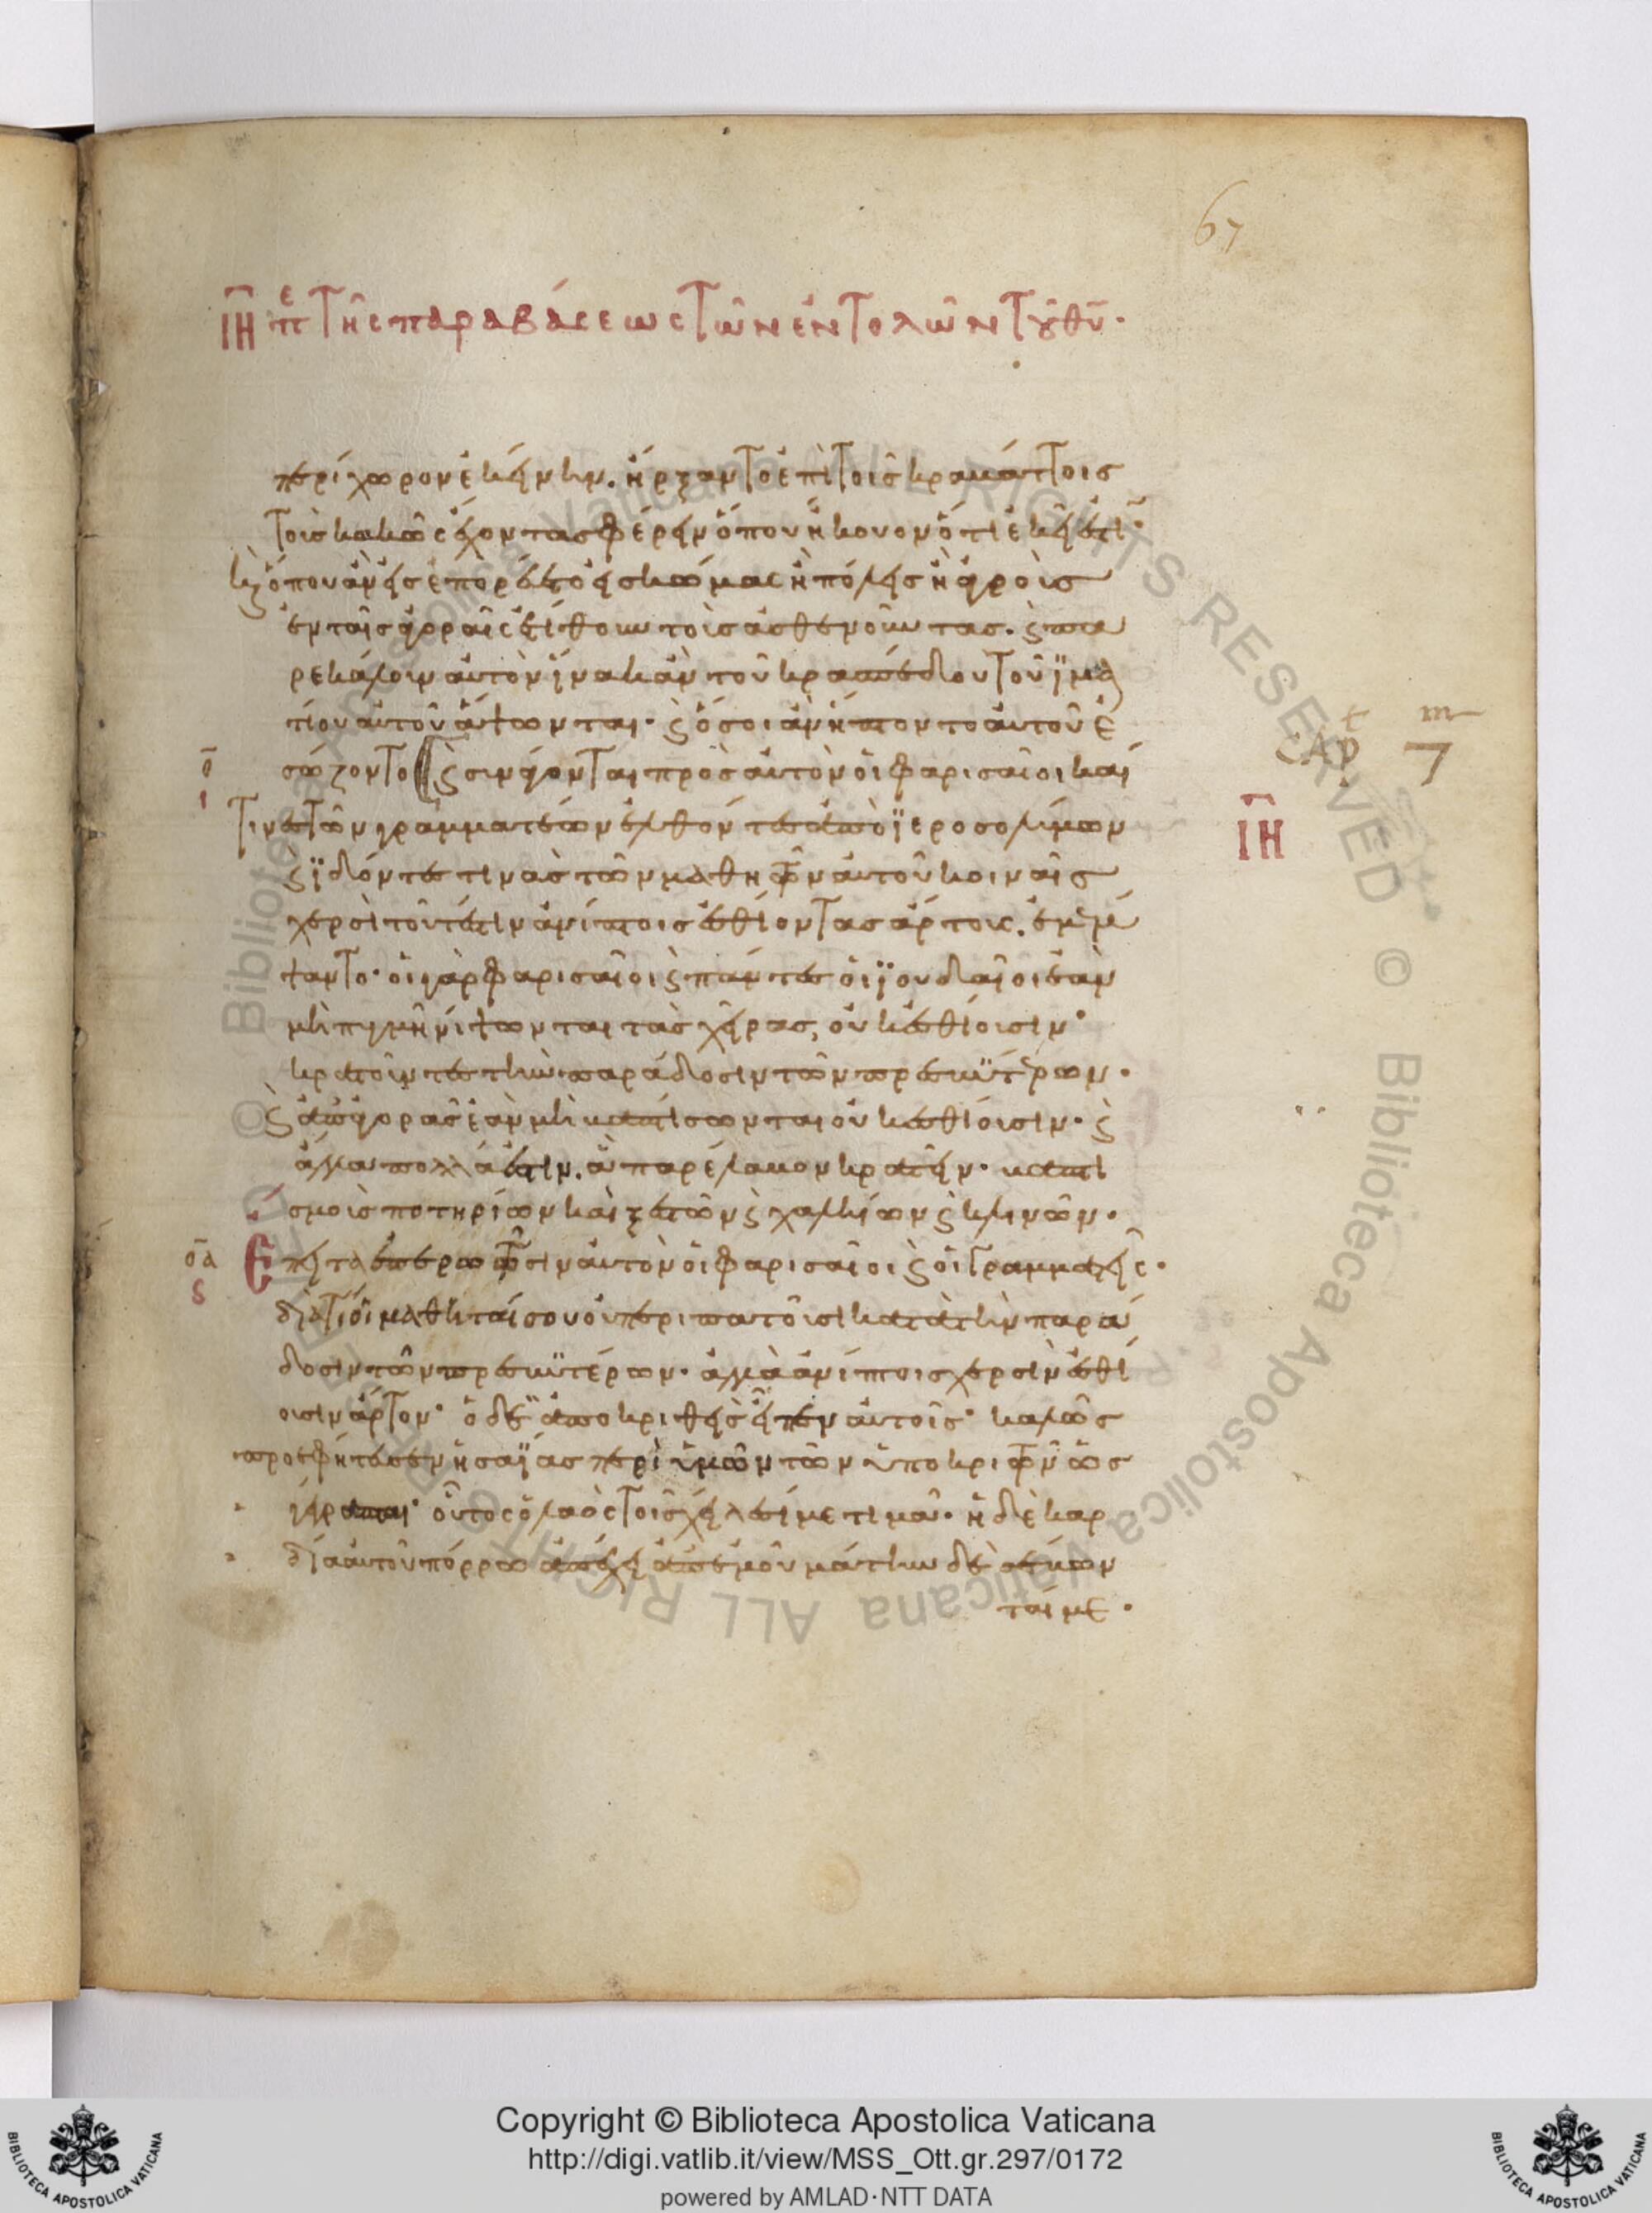 67
ΙΗ πε τῆς παραβάσεως τῶν ἐντολῶν τοῦ θυ.
περίχωρον ἐκείνην. ἤρξαντο ἐπὶ τοῖς κραβάττοις
τοὺς κακῶς ἔχοντας φέρειν ὅπου ἤκουον ὅτι ἐκεῖ ἐστι·
κ ὅπου ἂν εἰσεπορεύετο εἰς κώμας ἢ πόλεις ἢ ἀγροὺς
ἐν ταῖς ἀγοραῖς ἐτίθουν τοὺς ἀσθενοῦντας. ϛ πα
ρεκάλουν αὐτὸν ἵνα κἂν τοῦ κρασπέδου τοῦ ϊμα
τίου αὐτοῦ ἅψωνται· ϛ ὅσοι ἂν ἥπτοντο αὐτοῦ ἐ
σώζοντο ϛ συνάγονται πρὸς αὐτὸν οἱ φαρισαῖοι καί
τινες τῶν γραμματέων ἐλθόντες ἀπὸ ϊεροσολύμων
ϛ ϊδόντες τινὰς τῶν μαθητῶν αὐτοῦ κοιναῖς
χερσὶ τοῦτέστιν ἀνίπτοις ἐσθίοντας ἄρτους. ἐμέμ
ψαντο· οἱ γὰρ φαρισαῖοι ϛ πάντες οἱ ϊουδαῖοι ἐὰν
μὴ πυγμῇ νίψωνται τὰς χεῖρας, οὐκ ἐσθίουσιν·
κρατοῦντες τὴν παράδοσιν τῶν πρεσβϋτέρων·
ϛ ἀπ ἀγορᾶς ἐὰν μὴ βαπτίσωνται οὐκ ἐσθίουσιν· ϛ
ἄλλα πολλά ἐστιν. ἃ παρέλαβον κρατεῖν· βαπτι
σμοὺς ποτηρίων καὶ ξεστῶν ϛ χαλκίων ϛ κλινῶν·
Επειτα ἐπερωτῶσιν αὐτὸν οἱ φαρισαῖοι ϛ οἱ γραμματεῖς·
διατί οἱ μαθηταί σου οὐ περιπατοῦσι κατὰ τὴν παρά
δοσιν τῶν πρεσβϋτέρων· ἀλλὰ ἀνίπτοις χερσὶν ἐσθί
ουσιν ἄρτον· ὁ δὲ ἀποκριθεὶς εἶπεν αὐτοῖς· καλῶς
προεφήτευσεν ἡσαΐας περὶ ὑμῶν τῶν ὑποκριτῶν ὡς
γέγραπται· οὗτος ὁ λαὸς τοῖς χείλεσί με τιμᾶ· ἡ δὲ καρ
δία αὐτοῦ πόρρω ἀπέχει ἀπ ἐμοῦ μάτην δὲ σέβων
ταί με·
ο
ι
οα
ϛ
CAPt 7m
ΙΗ
Copyright © Biblioteca Apostolica Vaticana
http://digi.vatlib.it/view/MSS_Ott.gr.297/0172
powered by AMLAD·NTT DATA
BIBLIOTECA APOSTOLICA VATICANA
BIBLIOTECA APOSTOLICA VATICANA